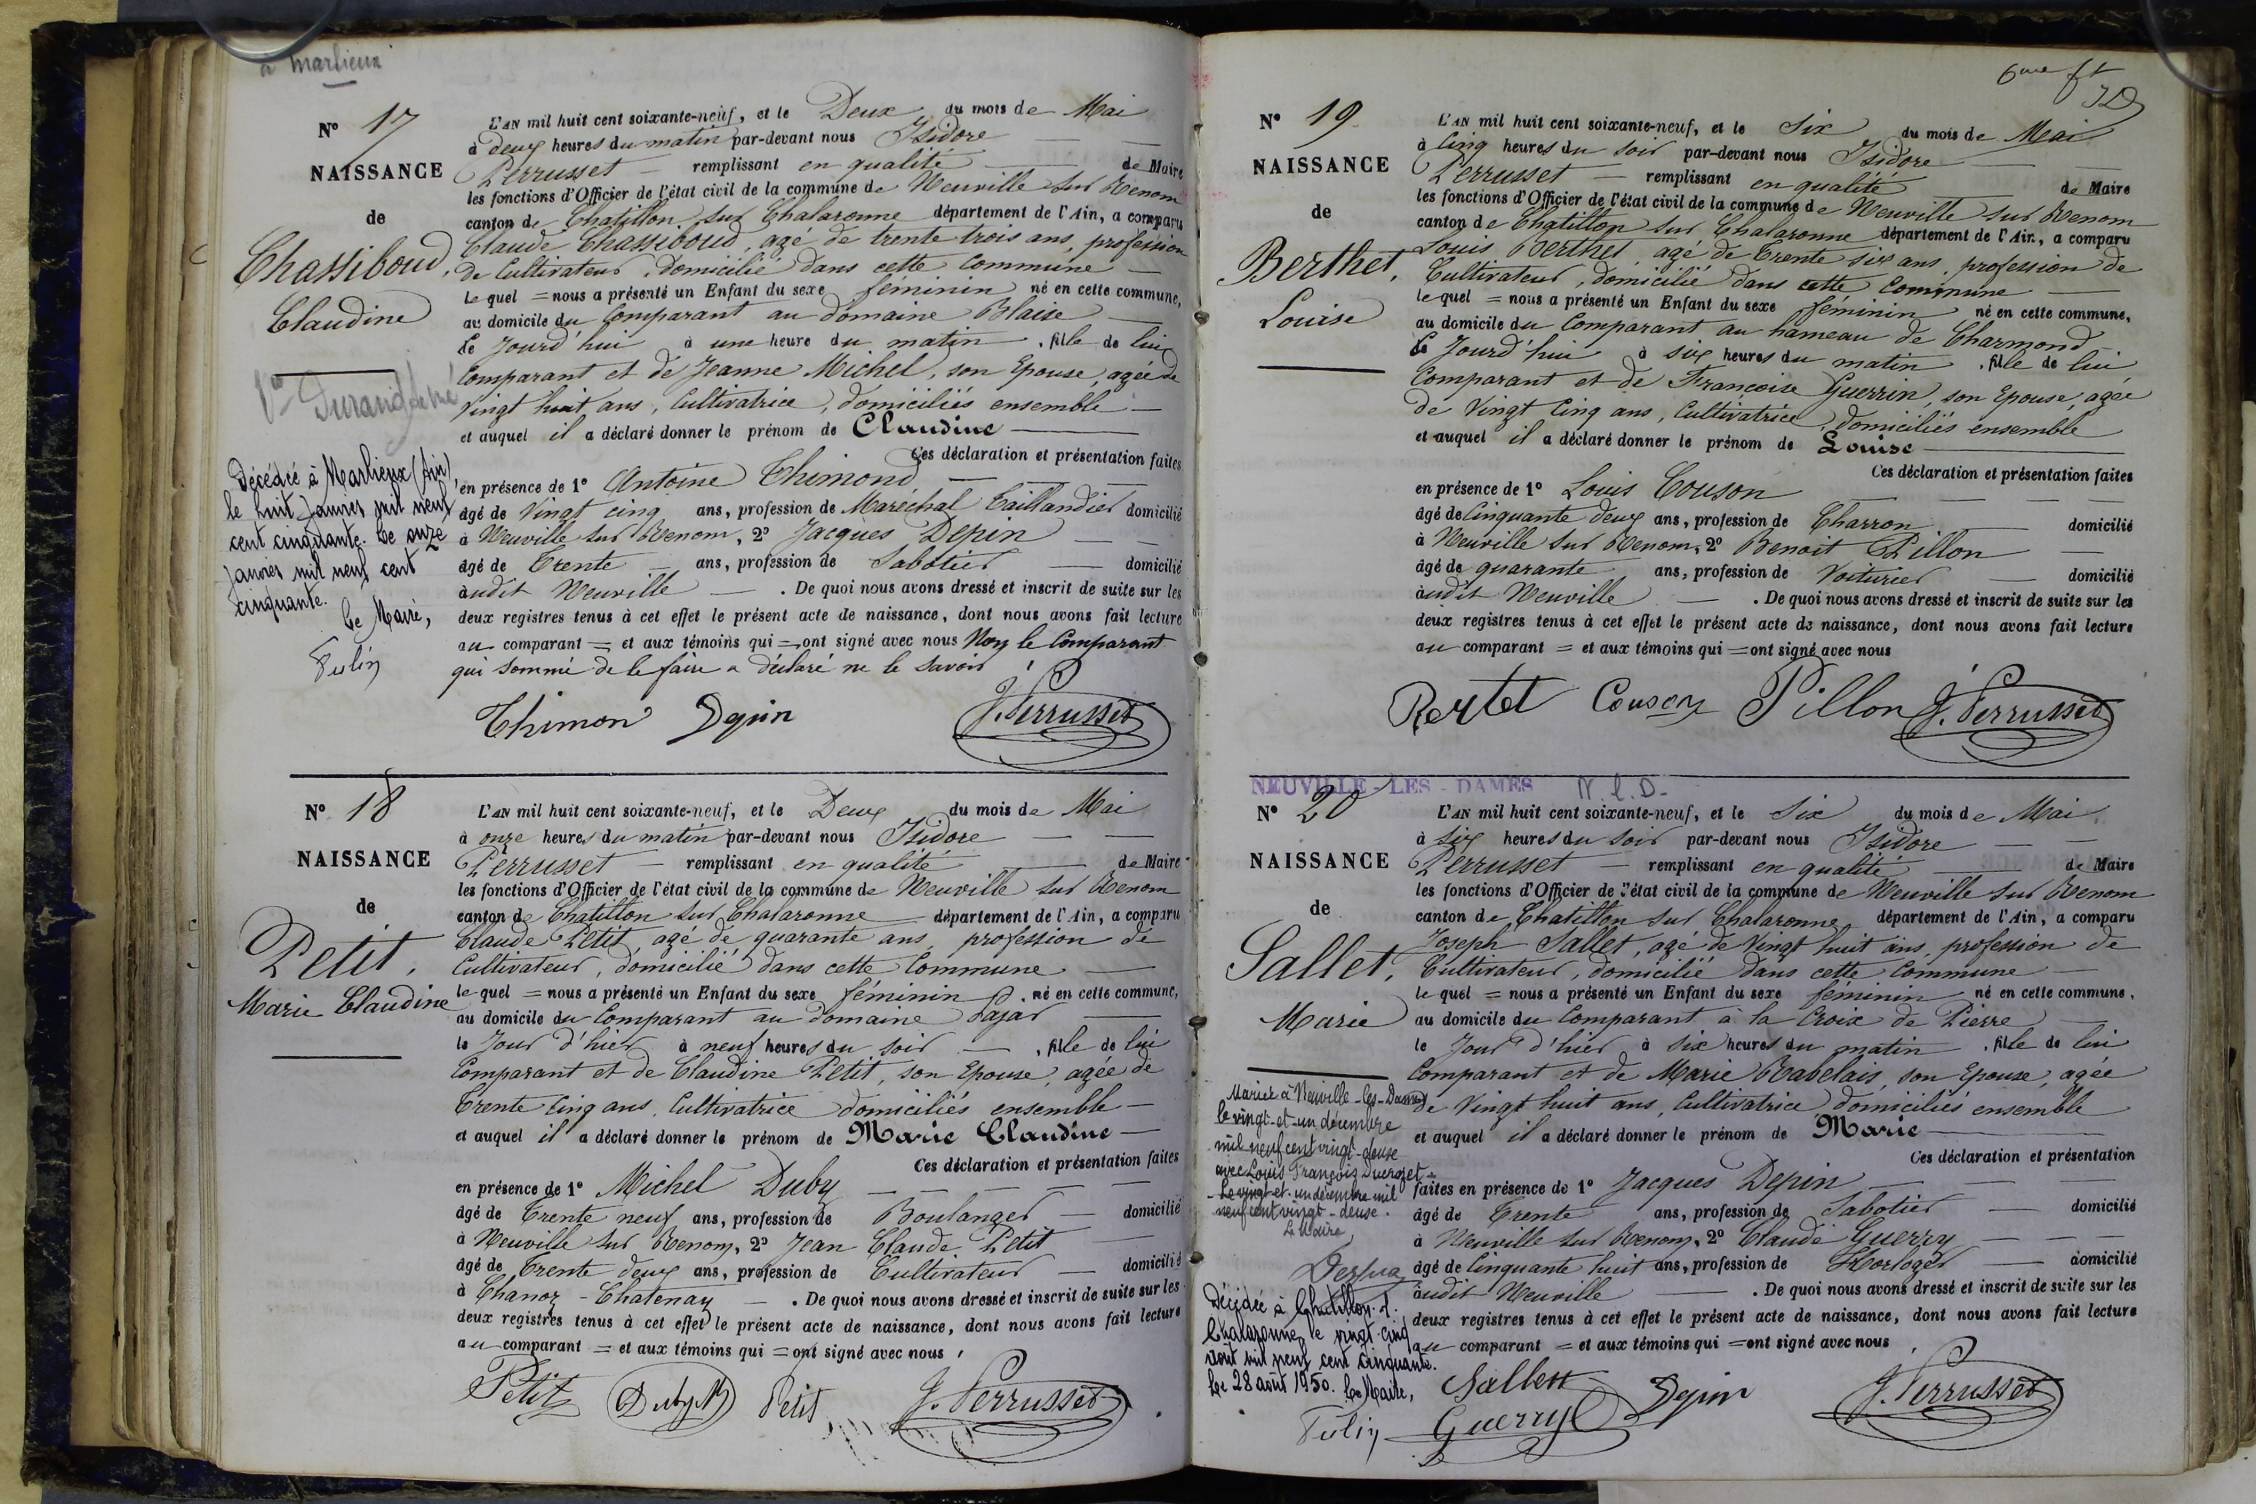 à Marlieux
Nº 17
NAISSANCE
de
Chassiboud,
Claudine
Décédée à Marlieux (Ain),
le huit Janvier mil neuf
cent cinquante. Le onze
Janvier mil neuf cent
cinquante.
Le Maire,
L'AN mil huit cent soixante-neuf, et le Deux du mois de Mai
à deux heures du matin par-devant nous Isidore
Perrusset remplissant en qualité de Maire
les fonctions d'Officier de l'état civil de la commune de Neuville sur Renom
canton de Chatillon sur Chalaronne département de l'Ain, a comparu
Claude Chassiboud, agé de trente trois ans, profession
de Cultivateur, domicilié dans cette Commune
lequel = nous a présenté un Enfant du sexe féminin né en cette commune,
au domicile du Comparant au domaine Blaise
le Jourd'hui à une heure du matin, fille de lui
Comparant et de Jeanne Michel, son Epouse, agée de
vingt huit ans, Cultivatrice, domiciliés ensemble
et auquel il a déclaré donner le prénom de Claudine
Ces déclaration et présentation faites
en présence de 1º Antoine Thimond
âgé de Vingt cinq ans, profession de Maréchal Taillandier domicilié
à Neuville sur Renom, 2º Jacques Depin
âgé de Trente ans, profession de Sabotier domicilié
audit Neuville. De quoi nous avons dressé et inscrit de suite sur les
deux registres tenus à cet effet le présent acte de naissance, dont nous avons fait lecture
au comparant = et aux témoins qui = ont signé avec nous Non le Comparant
qui sommé de le faire a déclaré ne le savoir
Thimon Depin J. Perrusset
Nº 18
NAISSANCE
de
Petit,
Marie Claudine
L'AN mil huit cent soixante-neuf, et le Deux du mois de Mai
à onze heures du matin par-devant nous Isidore
Perrusset remplissant en qualité de Maire
les fonctions d'Officier de l'état civil de la commune de Neuville sur Renom
canton de Chatillon sur Chalaronne département de l'Ain, a comparu
Claude Petit, agé de quarante ans, profession de
Cultivateur, domicilié dans cette Commune
lequel = nous a présenté un Enfant du sexe féminin, né en cette commune,
au domicile du Comparant au domaine Pajar
le Jour d'hier à neuf heures du soir, fille de lui
Comparant et de Claudine Petit, son Epouse, agée de
Trente Cinq ans, Cultivatrice domiciliés ensemble
et auquel il a déclaré donner le prénom de Marie Claudine
Ces déclaration et présentation faites
en présence de 1º Michel Duby
âgé de Trente neuf ans, profession de Boulanger domicilié
à Neuville sur Renom, 2º Jean Claude Petit
âgé de Trente deux ans, profession de Cultivateur domicilié
à Chanoz-Chatenay. De quoi nous avons dressé et inscrit de suite sur les
deux registres tenus à cet effet le présent acte de naissance, dont nous avons fait lecture
au comparant = et aux témoins qui = ont signé avec nous
Petit Duby M Petit J. Perrusset
Nº 19
NAISSANCE
de
Berthet,
Louise
L'AN mil huit cent soixante-neuf, et le Six du mois de Mai
à Cinq heures du soir par-devant nous Isidore
Perrusset remplissant en qualité de Maire
les fonctions d'Officier de l'état civil de la commune de Neuville sur Renom
canton de Chatillon sur Chalaronne département de l'Ain, a comparu
Louis Berthet, agé de Trente six ans, profession de
Cultivateur, domicilié dans cette Commune
lequel = nous a présenté un Enfant du sexe féminin né en cette commune,
au domicile du Comparant au hameau de Charmond
le Jourd'hui à six heures du matin, fille de lui
Comparant et de Françoise Guerrin, son Epouse, agée
de Vingt Cinq ans, Cultivatrice, domiciliés ensemble
et auquel il a déclaré donner le prénom de Louise
Ces déclaration et présentation faites
en présence de 1º Louis Couson
âgé de Cinquante deux ans, profession de Charron domicilié
à Neuville sur Renom, 2º Benoit Pillon
âgé de quarante ans, profession de Voiturier domicilié
audit Neuville. De quoi nous avons dressé et inscrit de suite sur les
deux registres tenus à cet effet le présent acte de naissance, dont nous avons fait lecture
au comparant = et aux témoins qui = ont signé avec nous
Bertet Couson Pillon J. Perrusset
NEUVILLE-LES-DAMES N.L.D.
Nº 20
NAISSANCE
de
Sallet,
Marie
Mariée à Neuville-les-Dames
le vingt-et-un décembre
mil neuf cent vingt-deuse
avec Louis François
Le vingt-et-un décembre mil
neuf cent vingt-deuse.
Le Maire
Décédée à Chatillon s.
Chalaronne le vingt-cinq
août mil neuf cent cinquante.
Le 28 août 1950. Le Maire,
L'AN mil huit cent soixante-neuf, et le Six du mois de Mai
à six heures du soir par-devant nous Isidore
Perrusset remplissant en qualité de Maire
les fonctions d'Officier de l'état civil de la commune de Neuville sur Renom
canton de Chatillon sur Chalaronne département de l'Ain, a comparu
Joseph Sallet, agé de Vingt huit ans, profession de
Cultivateur, domicilié dans cette Commune
lequel = nous a présenté un Enfant du sexe féminin né en cette commune,
au domicile du Comparant à la Croix de Pierre
le Jour d'hier à six heures du matin, fille de lui
Comparant et de Marie Rabelais, son Epouse, agée
de Vingt huit ans, Cultivatrice, domiciliés ensemble
et auquel il a déclaré donner le prénom de Marie
Ces déclaration et présentation
faites en présence de 1º Jacques Depin
âgé de Trente ans, profession de Sabotier domicilié
à Neuville sur Renom, 2º Claude Guerry
âgé de Cinquante huit ans, profession de Horloger domicilié
audit Neuville. De quoi nous avons dressé et inscrit de suite sur les
deux registres tenus à cet effet le présent acte de naissance, dont nous avons fait lecture
au comparant = et aux témoins qui = ont signé avec nous
Sallet Depin J. Perrusset
Guerry